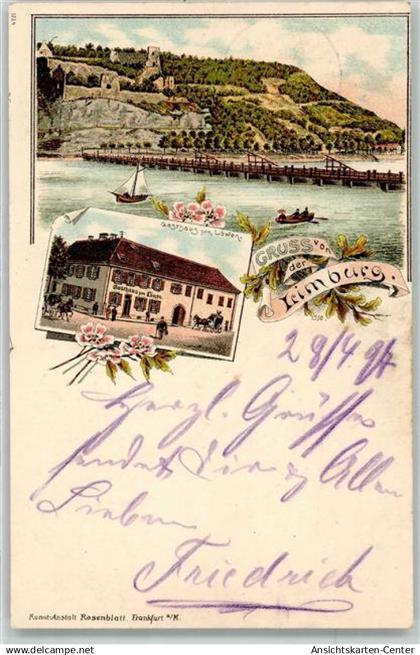 1221
Gasthaus zum Löwen.
GRUSS von
der
Limburg.
Gasthaus zum Löwen
28/4 97
Herzl. Grüsse
sendet Dir & Allen
Lieben
Friedrich
Kunst-Anstalt Rosenblatt. Frankfurt a/M.
www.hippostcard.com
Ansichtskarten-Center